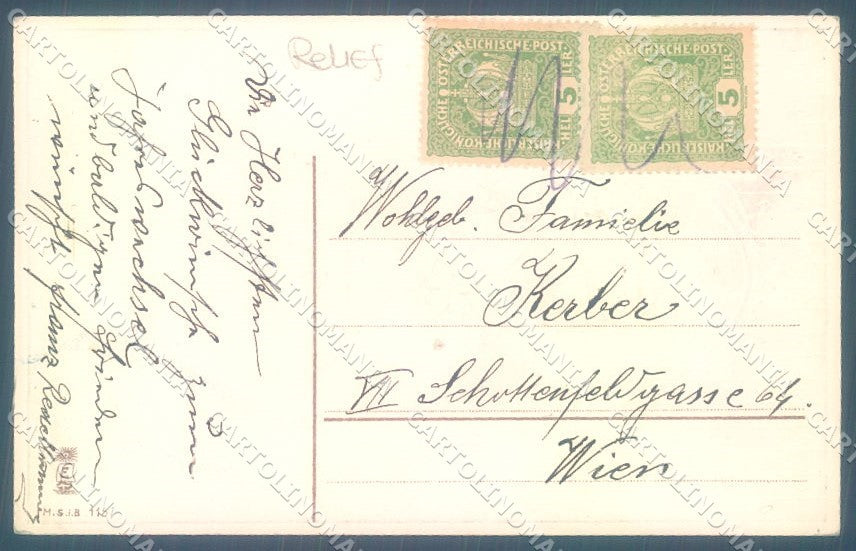 Relief
KAISERLICHE KÖNIGLICHE ÖSTERREICHISCHE POST
5 HELLER
KAISERLICHE KÖNIGLICHE ÖSTERREICHISCHE POST
5 HELLER
Die Herzlichsten
Glückwünsche zum
Jahreswechsel
und baldigen Frieden
wünscht Hans
Wohlgeb. Familie
Kerber
VII Schottenfeldgasse 64.
Wien
M.S.i.B 113
CARTOLINOMANIA